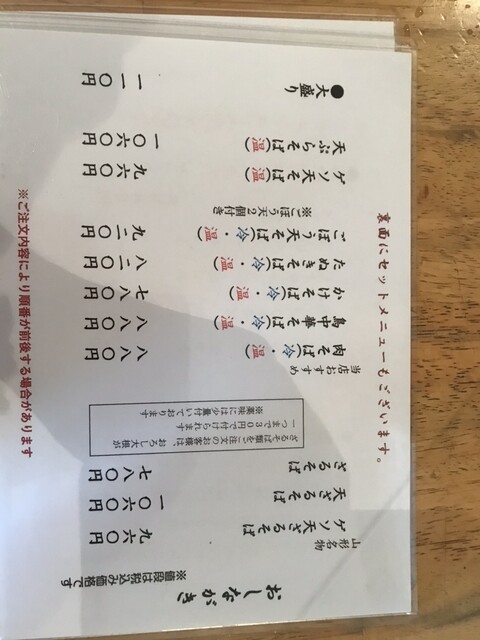 裏面にセットメニューもございます。
おしながき
※値段は税込み価格です
山形名物
ゲソ天ざるそば 九六〇円
天ざるそば 一〇六〇円
ざるそば 七八〇円
ざるそば類をご注文のお客様は、おしろ大根が
一つまで30円で付けられます
※薬味には少量付いております
当店おすすめ
肉そば(冷・温) 八八〇円
鳥中華(冷・温) 八八〇円
かけそば(冷・温) 七八〇円
たぬきそば(冷・温) 八二〇円
ごぼう天そば(冷・温) 九二〇円
※ごぼう天2個付き
ゲソ天そば(温) 九六〇円
天ぷらそば(温) 一〇六〇円
●大盛り 一一〇円
※ご注文内容により順番が前後する場合があります